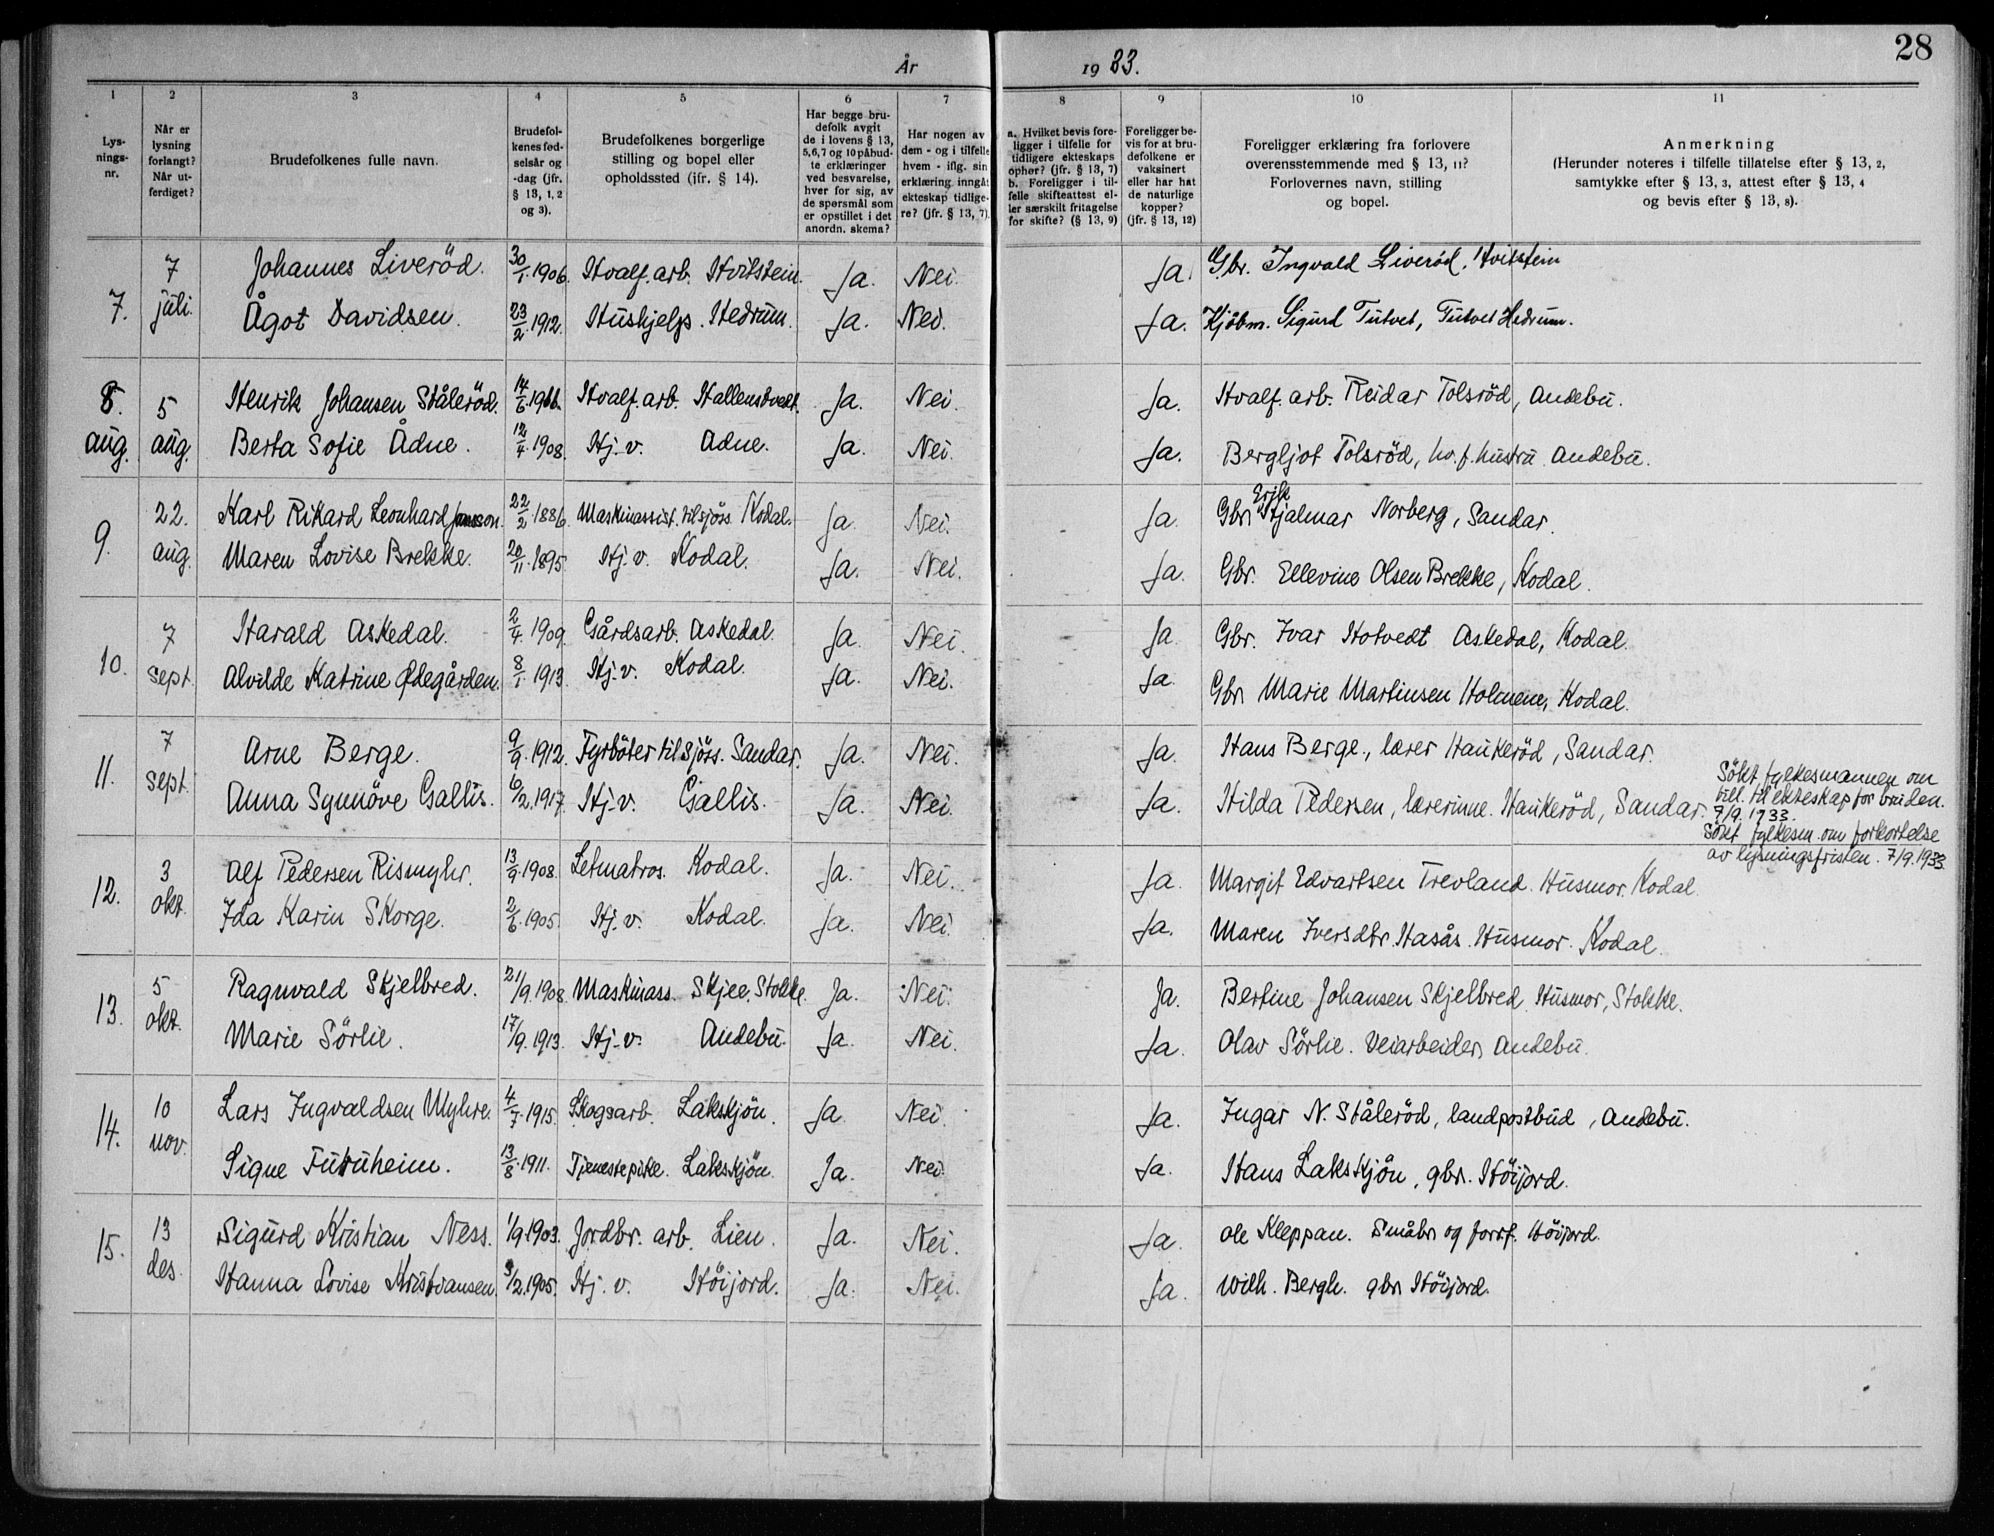 28
År 1933.
1 2 3 4 5 6 7 8 9 10 11
Lysningsnr.
Når er lysning forlangt? Når utferdiget?
Brudefolkenes fulle navn.
Brudefolkenes fødselsår og -dag (jfr. § 13, 1, 2 og 3).
Brudefolkenes borgerlige stilling og bopel eller opholdssted (jfr. § 14).
Har begge brudefolk avgit de i lovens § 13, 5, 6, 7 og 10 påbudte erklæringer ved besvarelse, hver for sig, av de spørsmål som er opstillet i det anordn. skema?
Har nogen av dem - og i tilfelle hvem - iflg. sin erklæring inngåt ekteskap tidligere? (jfr. § 13, 7).
a. Hvilket bevis foreligger i tilfelle for tidligere ekteskaps ophør? (jfr. § 13, 7) b. Foreligger i tilfelle skifteattest eller særskilt fritagelse for skifte? (§ 13, 9)
Foreligger bevis for at brudefolkene er vaksinert eller har hat de naturlige kopper? (jfr. § 13, 12)
Foreligger erklæring fra forlovere overensstemmende med § 13, 11? Forlovernes navn, stilling og bopel.
Anmerkning (Herunder noteres i tilfelle tillatelse efter § 13, 2, samtykke efter § 13, 3, attest efter § 13, 4 og bevis efter § 13, 8).
7. 7 juli. Johannes Liveröd. 30/1.1906. Hvalf.arb. Hvitstein. Ja. Nei. Ja. Gbr. Ingvald Liveröd, Hvitstein
Ågot Davidsen. 23/2.1912. Hushjelp. Hedrum. Ja. Nei. Ja. Kjöbm. Sigurd Tutvet, Tutvet Hedrum.
8. aug. 5 aug. Henrik Johansen Ståleröd. 14/6. Hvalf.arb. Hallenstvedt. Ja. Nei. Ja. Hvalf.arb. Reidar Tolsröd, Andebu.
Berta Sofie Ådne. 12/4.1908. Hj.v. Ådne. Ja. Nei. Ja. Bergljot Tolsröd, hv.f.hustru Andebu.
9. 22. aug. Karl Rikard Leonhard Jansson. 22/2.1886. Maskinassist. tilsjøss Kodal. Ja. Nei. Ja. Gbr. Erik Hjalmar Norberg, Sandar.
Maren Lovise Brekke. 20/11.1895. Hj.v. Kodal. Ja. Nei. Ja. Gbr. Ellevine Olsen Brekke, Kodal.
10. 7 sept. Harald Askedal. 2/4.1909. Gårdsarb. Askedal. Ja. Nei. Ja. Gbr. Ivar Hotvedt Askedal, Kodal.
Alvilde Katrine Ødegården. 8/1.1913. Hj.v. Kodal. Ja. Nei. Ja. Gbr. Marie Martinsen Holmene, Kodal.
11. 7 sept. Arne Berge. 9/9.1912. Fyrböter tilsjöss. Sandar. Ja. Nei. Ja. Hans Berge, lærer Haukeröd, Sandar.
Anna Synnöve Gallis. 6/2.1917. Hj.v. Gallis. Ja. Nei. Ja. Hilda Pedersen, lærerinne. Haukeröd, Sandar.
Søkt fylkesmannen om
till. til ekteskap for bruden.
7/9.1933.
Søkt fylkesm. om forkortelse
av lysningsfristen. 7/9.1933
12. 3 okt. Alf Pedersen Rismyhr. 13/9.1908. Letmatros. Kodal. Ja. Nei. Ja. Margit Edvartsen Trevland. Husmor. Kodal
Ida Karin Skorge. 2/6.1905. Hj.v. Kodal. Ja. Nei. Ja. Maren Iversdtr. Hasås. Husmor. Kodal.
13. 5 okt. Ragnvald Skjelbred. 21/9.1908. Maskinass. Skjee, Stokke. Ja. Nei. Ja. Bertine Johansen Skjelbred. Husmor, Stokke.
Marie Sörlie. 17/9.1913. Hj.v. Andebu. Ja. Nei. Ja. Olav Sörlie. Veiarbeider, Andebu.
14. 10 nov. Lars Ingvaldsen Myhre. 4/7.1915. Skogsarb. Lakskjön. Ja. Nei. Ja. Ingar N. Ståleröd, landpostbud, Andebu.
Signe Furuheim. 13/8.1911. Tjenestepike. Lakskjön. Ja. Nei. Ja. Hans Lakskjön, gbr. Höijord.
15. 13 des. Sigurd Kristian Ness. 1/9.1903. Jordbr. arb. Lien. Ja. Nei. Ja. Ole Kleppan. Småbr. og forrf. Höijord.
Hanna Lovise Kristiansen. 3/2.1905. Hj.v. Höijord. Ja. Nei. Ja. Wilh. Bergh. gbr. Höijord.